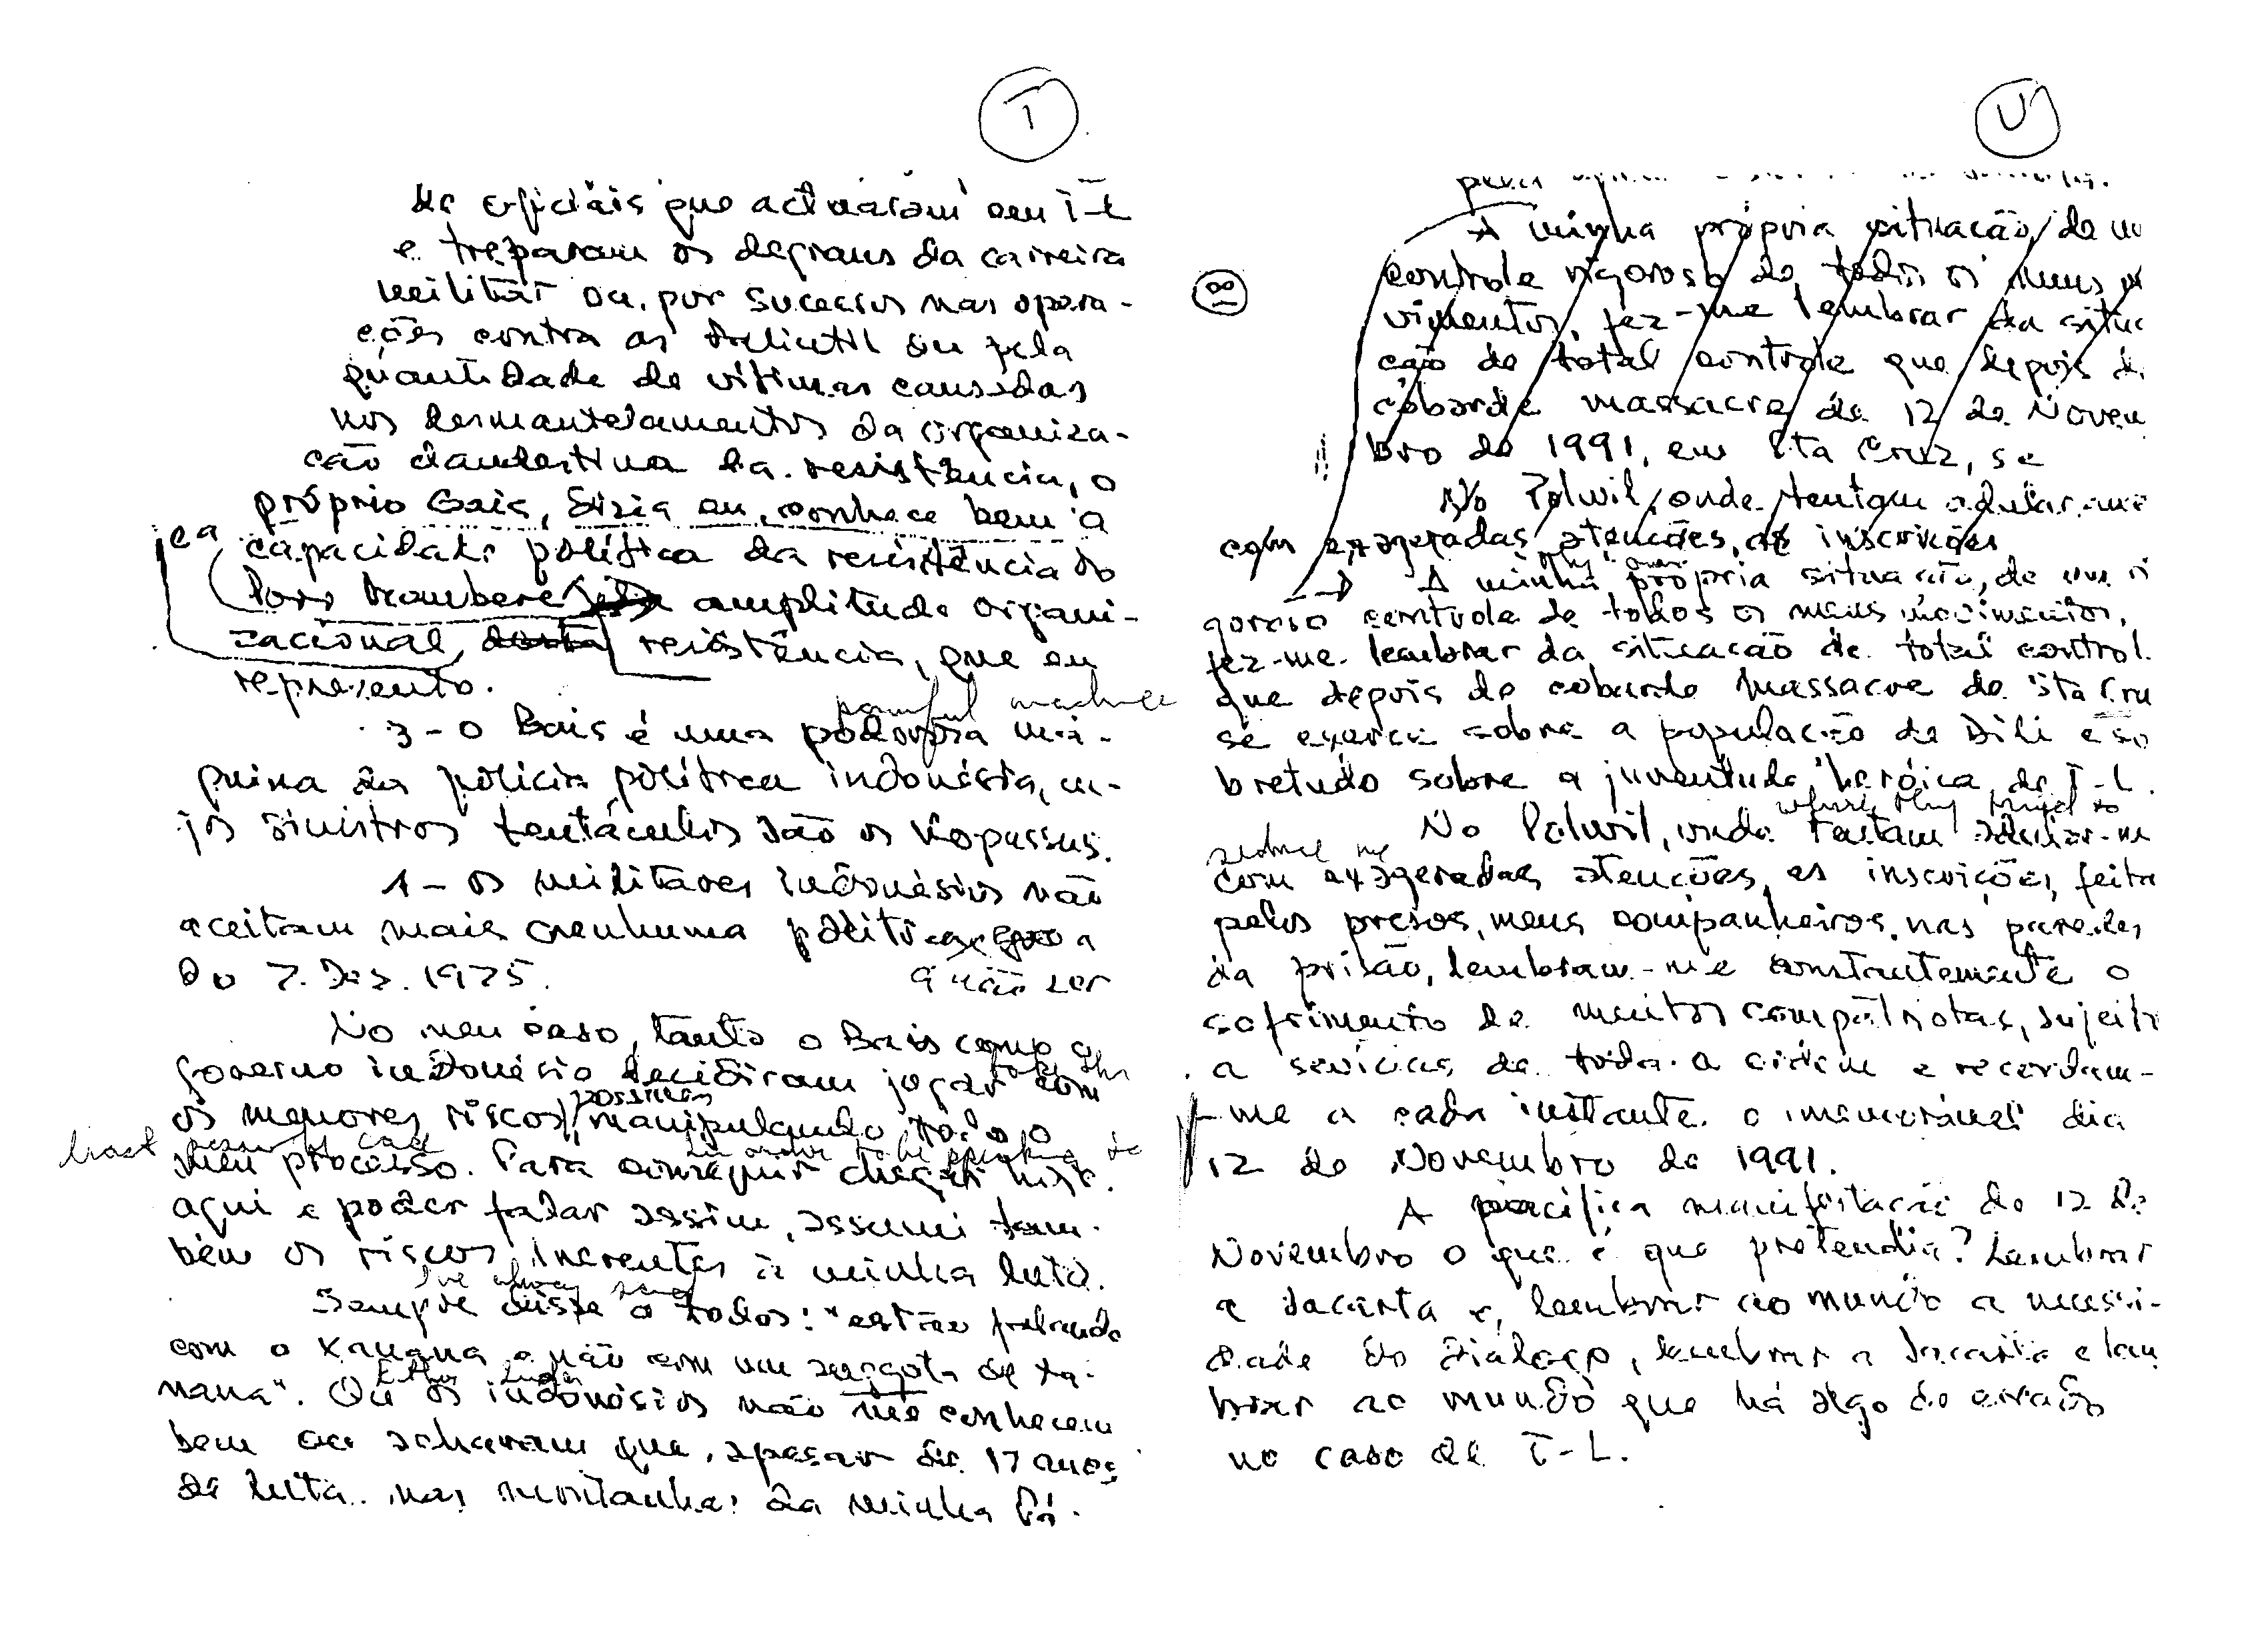 T
de oficiáis que actuaram em T-L
e treparam os degraus da carreira
militar ou, por sucessos nas opera-
ções contra as Falintil ou pela
quantidade de vítimas causadas
nos desmantelamentos da organiza-
ção clandestina da resistência, o
próprio Bais, dizia eu, conhece bem a
e a
capacidade política da resistência do
Povo Maubere amplitude organi-
zacional, desta resistência, que eu
represento.
powerful machine
3 - O Bais é uma poderosa má-
quina da polícia política indonésia, cu-
jos sinistros tentáculos são os Kopassus.
1 - Os militares indonésios não
aceitam mais nenhuma política
a não ser a
do 7. Dez. 1975.
No meu caso, tanto o Bais como o
take the
governo indonésio decidiram jogar com
possíveis
os menores riscos, manipulando todo o
least
meu processo. Para conseguir chegar hoje
aqui e poder falar assim, assumi tam-
bém os riscos inerentes à minha luta.
I've always said
Sempre disse a todos: "estão falando
com o Xanana e não com um
mana". Ou os indonésios não me conhecem
bem ou acharam que, apesar de 17 anos
de luta nas montanhas da minha Pá-
U
A minha própria situação, de
controle rigoroso de todos os meus
vimentos, fez-me lembrar da situa
ção de total controle que depois d
cobarde massacre de 12 de Novem
bro de 1991, em Sta Cruz, se
No Polwil, onde tentam adular-me
com exageradas atenções, as inscrições
my own
A minha própria situação, de um ri
goroso controle de todos os meus movimentos,
fez-me lembrar da situação de total control
que depois do cobarde massacre de Sta Cru
se exerce sobre a população de Dili e so
bretudo sobre a juventude heróica de T-L.
where they tried to
No Polwil, onde tentam adular-me
seduce me
com exageradas atenções, as inscrições, feita
pelos presos, meus companheiros, nas paredes
da prisão, lembram-me constantemente o
sofrimento de muitos compatriotas, sujeito
a sevícias de toda a ordem e recordam-
-me a cada instante o imemorável dia
12 de Novembro de 1991.
A pacífica manifestação de 12 de
Novembro o que é que pretendia? Lembrar
a Jacarta e, lembrar ao mundo a necessi-
dade do diálogo, lembrar a Jacarta e lem
brar ao mundo que há algo de errado
no caso de T-L.